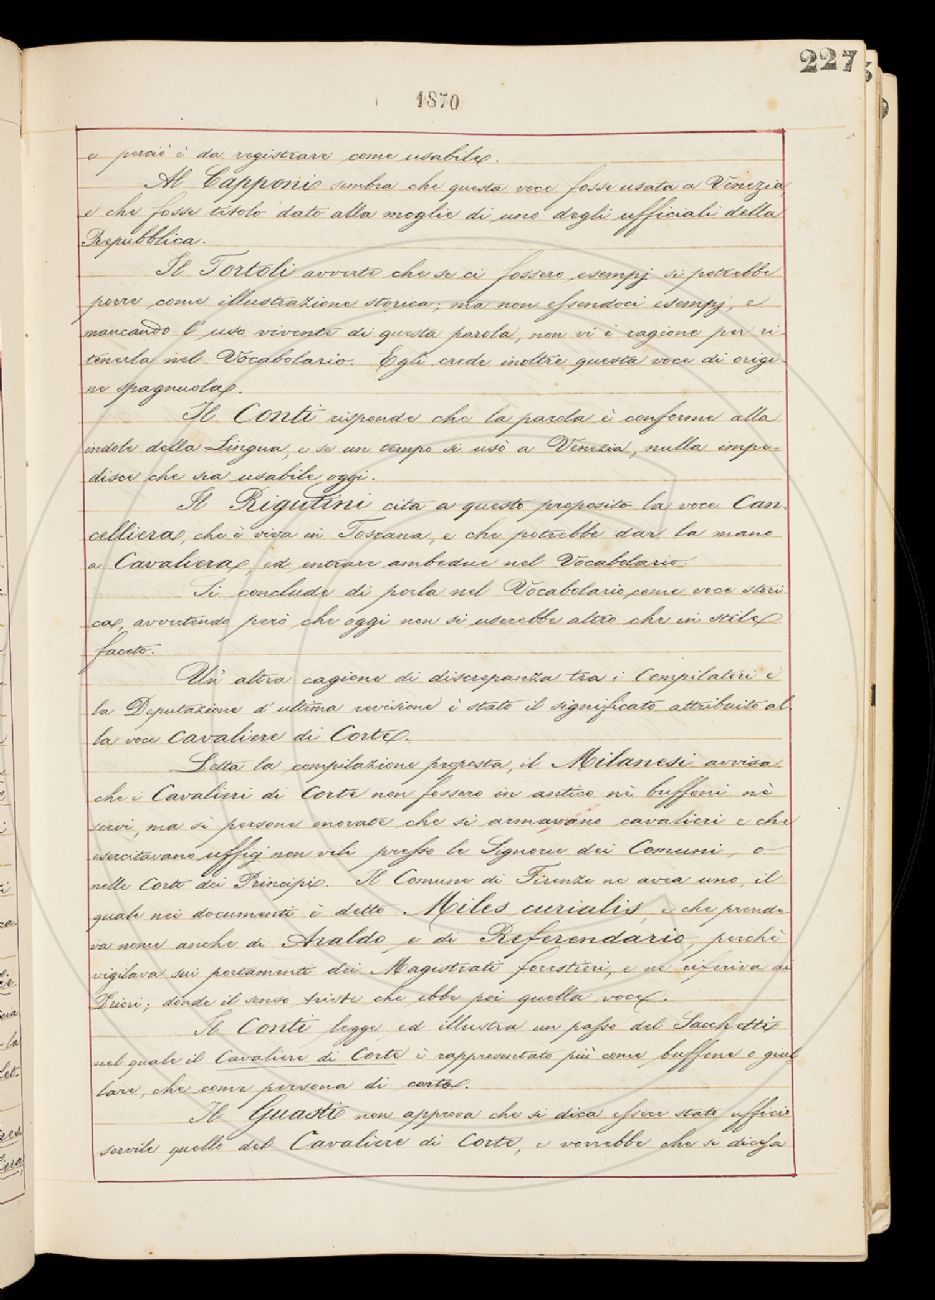 227
1870
e perciò è da registrare come usabile.
Al Capponi sembra che questa voce fosse usata a Venezia
e che fosse titolo dato alla moglie di uno degli ufficiali della
Repubblica.
Il Tortoli avverte che se ci fossero esempj si potrebbe
porre come illustrazione storica; ma non essendoci esempj, e
mancando l'uso vivente di questa parola, non vi è ragione per ri
tenerla nel Vocabolario. Egli crede inoltre questa voce di origi
ne spagnuola.
Il Conti risponde che la parola è conforme alla
indole della Lingua, e se un tempo si usò a Venezia, nulla impe-
disce che sia usabile oggi.
Il Rigutini cita a questo proposito la voce Can-
celliera, che è viva in Toscana, e che potrebbe dar la mano
a Cavaliera, ed entrare ambedue nel Vocabolario.
Si conclude di porla nel Vocabolario come voce stori
ca, avvertendo però che oggi non si userebbe altro che in stile
faceto.
Un altra cagione di discrepanza tra i Compilatori e
la Deputazione d'ultima revisione è stato il significato attribuito al
la voce Cavaliere di Corte.
Letta la compilazione proposta, il Milanesi avvisa
che i Cavalieri di Corte non fossero in antico nè buffoni nè
servi, ma sì persone onorate che si armavano cavalieri e che
esercitavano uffizj non vili presso le Signorie dei Comuni, o
nelle Corti dei Principi. Il Comune di Firenze ne avea uno, il
quale nei documenti è detto Miles curialis, e che prende
va nome anche di Araldo e di Referendario, perchè
vigilava sui portamenti dei Magistrati forestieri, e ne riferiva ai
Priori; donde il senso triste che ebbe poi quella voce.
Il Conti legge ed illustra un passo del Sacchetti
nel quale il Cavaliere di Corte è rappresentato più come buffone o giul
lare, che come persona di corte.
Il Guasti non approva che si dica essere stato officio
servile quello del Cavaliere di Corte, e vorrebbe che si dicesse